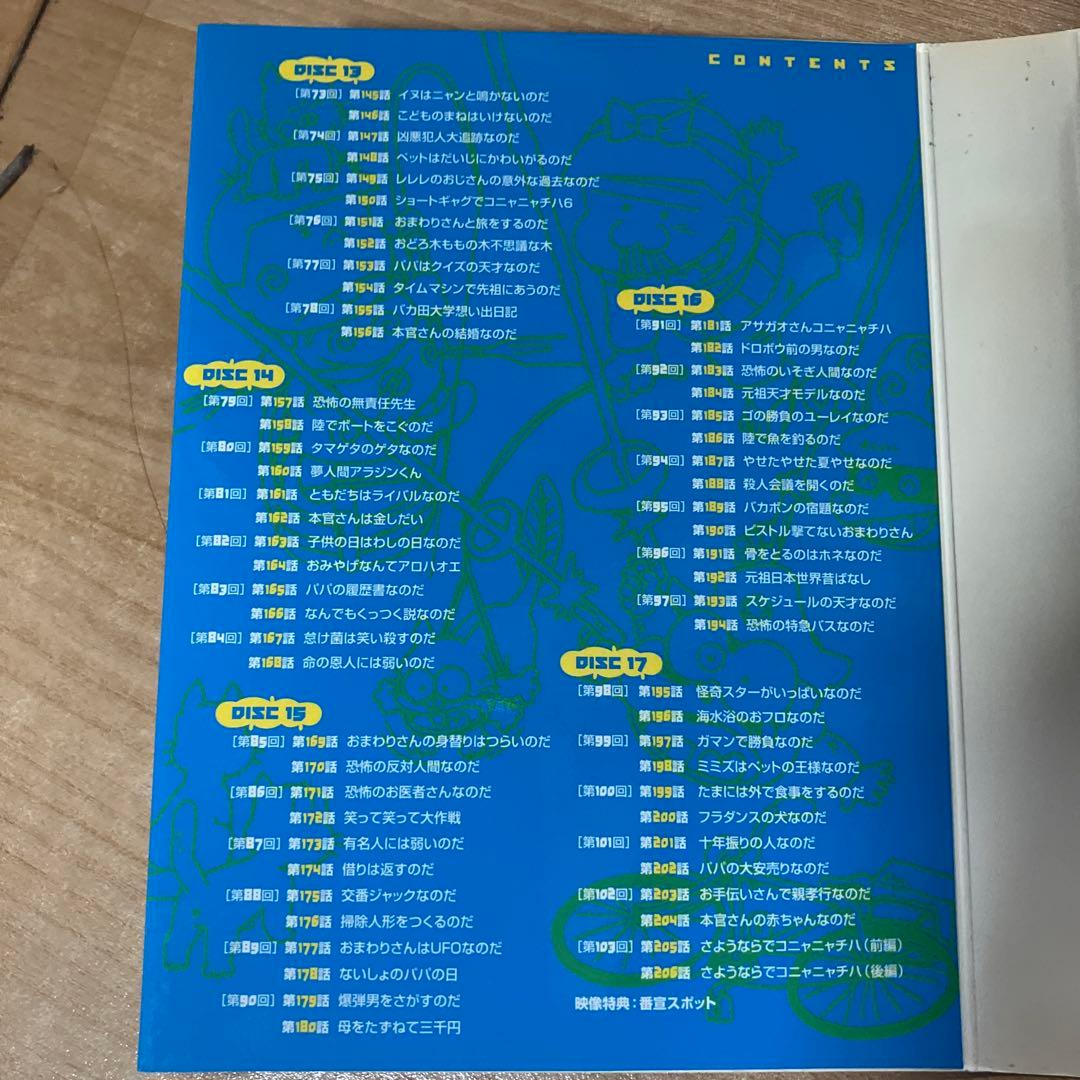 CONTENTS
DISC 13
［第73回］第145話 イヌはニャンと鳴かないのだ
第146話 こどものまねはいけないのだ
［第74回］第147話 凶悪犯人大追跡なのだ
第148話 ペットはだいじにかわいがるのだ
［第75回］第149話 レレレのおじさんの意外な過去なのだ
第150話 ショートギャグでコニャニャチハ6
［第76回］第151話 おまわりさんと旅をするのだ
第152話 おどろ木ももの木不思議な木
［第77回］第153話 パパはクイズの天才なのだ
第154話 タイムマシンで先祖にあうのだ
［第78回］第155話 バカ田大学想い出日記
第156話 本官さんの結婚なのだ
DISC 14
［第79回］第157話 恐怖の無責任先生
第158話 陸でボートをこぐのだ
［第80回］第159話 タマゲタのゲタなのだ
第160話 夢人間アラジンくん
［第81回］第161話 ともだちはライバルなのだ
第162話 本官さんは金しだい
［第82回］第163話 子供の日はわしの日なのだ
第164話 おみやげなんてアロハオエ
［第83回］第165話 パパの履歴書なのだ
第166話 なんでもくっつく説なのだ
［第84回］第167話 怠け菌は笑い殺すのだ
第168話 命の恩人には弱いのだ
DISC 15
［第85回］第169話 おまわりさんの身替りはつらいのだ
第170話 恐怖の反対人間なのだ
［第86回］第171話 恐怖のお医者さんなのだ
第172話 笑って笑って大作戦
［第87回］第173話 有名人には弱いのだ
第174話 借りは返すのだ
［第88回］第175話 交番ジャックなのだ
第176話 掃除人形をつくるのだ
［第89回］第177話 おまわりさんはUFOなのだ
第178話 ないしょのパパの日
［第90回］第179話 爆弾男をさがすのだ
第180話 母をたずねて三千円
DISC 16
［第91回］第181話 アサガオさんコニャニャチハ
第182話 ドロボウ前の男なのだ
［第92回］第183話 恐怖のいそぎ人間なのだ
第184話 元祖天才モデルなのだ
［第93回］第185話 ゴの勝負のユーレイなのだ
第186話 陸で魚を釣るのだ
［第94回］第187話 やせたやせた夏やせなのだ
第188話 殺人会議を開くのだ
［第95回］第189話 バカボンの宿題なのだ
第190話 ピストル撃てないおまわりさん
［第96回］第191話 骨をとるのはホネなのだ
第192話 元祖日本世界昔ばなし
［第97回］第193話 スケジュールの天才なのだ
第194話 恐怖の特急バスなのだ
DISC 17
［第98回］第195話 怪奇スターがいっぱいなのだ
第196話 海水浴のおフロなのだ
［第99回］第197話 ガマンで勝負なのだ
第198話 ミミズはペットの王様なのだ
［第100回］第199話 たまには外で食事をするのだ
第200話 フラダンスの犬なのだ
［第101回］第201話 十年振りの人なのだ
第202話 パパの大安売りなのだ
［第102回］第203話 お手伝いさんで親孝行なのだ
第204話 本官さんの赤ちゃんなのだ
［第103回］第205話 さようならでコニャニャチハ（前編）
第206話 さようならでコニャニャチハ（後編）
映像特典：番宣スポット